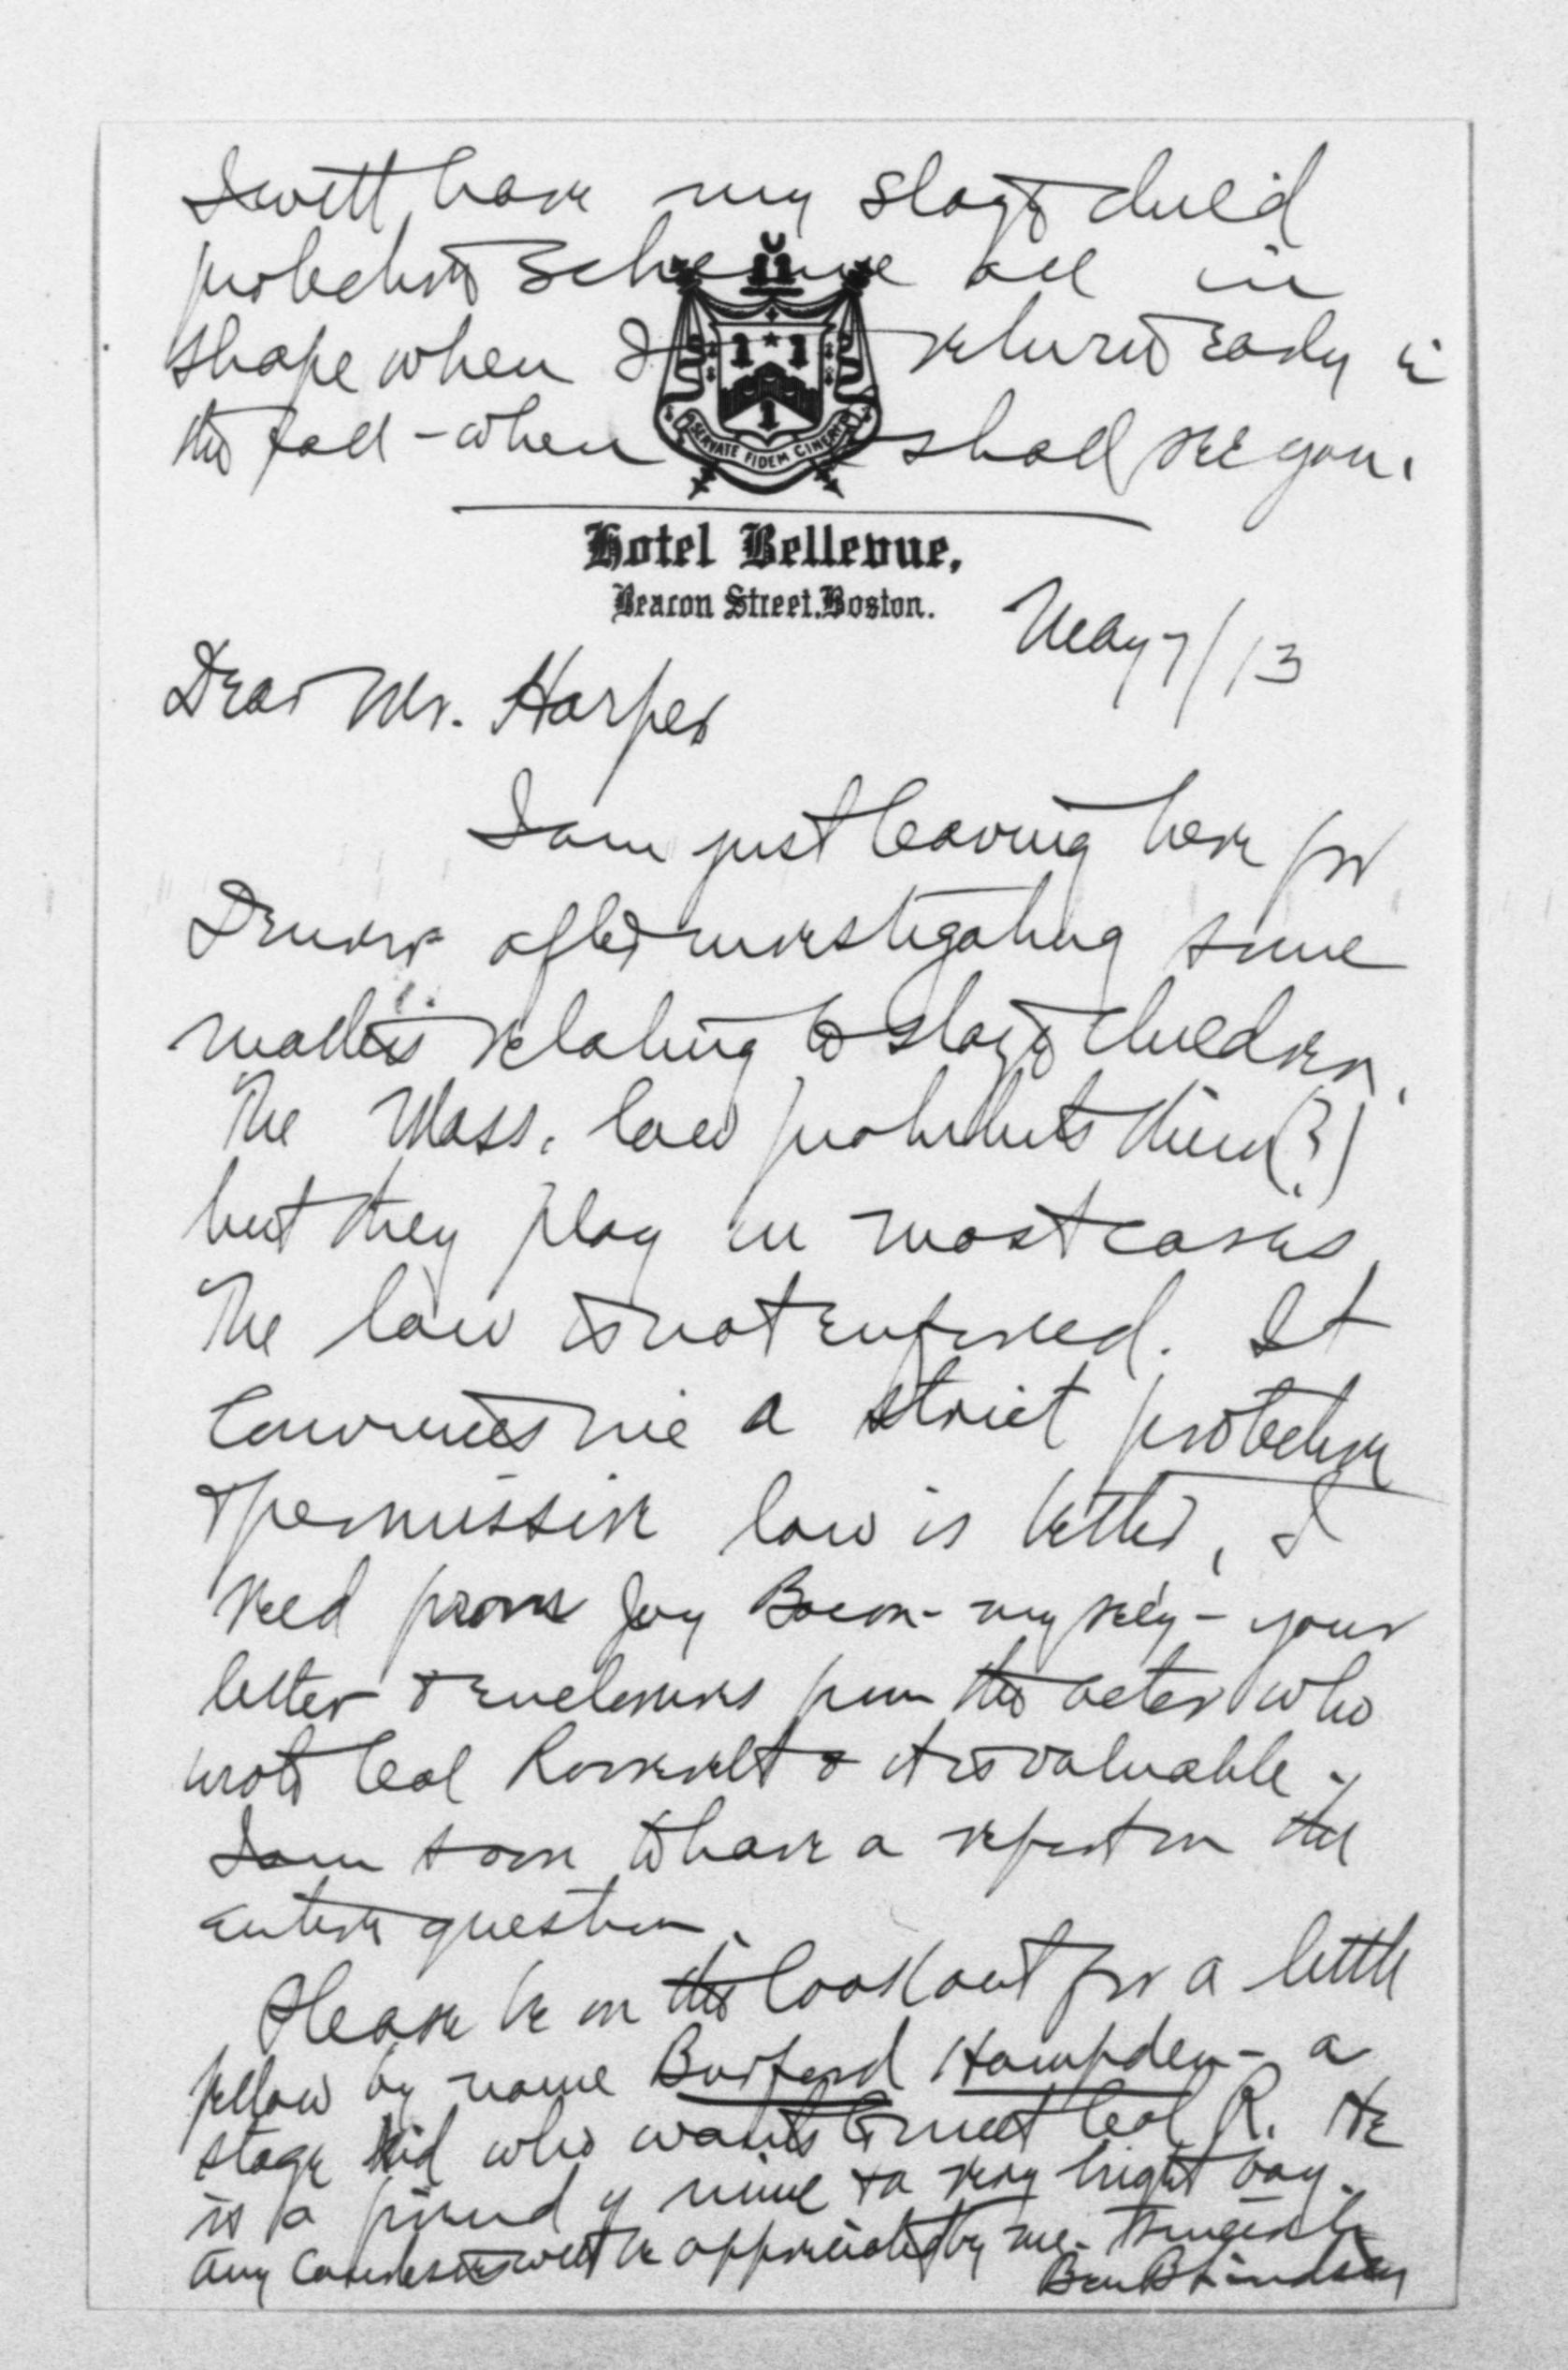 I will have my stage child
protection scheme all in
shape when I return early in
the fall - when I shall see you.
SERVATE FIDEM CINERI
Hotel Bellevue,
Beacon Street. Boston.
May 7/13
Dear Mr. Harper
I am just leaving here for
Denver after investigating some
matters relating to stage children.
The Mass. law prohibits them (?)
but they play in most cases
The law is not enforced. It
convinces me a strict protective
& permissive law is better, I
recd from Joy Bacon - my secy - your
letter & enclosures from the actor who
wrote Col Roosevelt & it is valuable.
I am soon to have a report on the
entire question.
Please be on the lookout for a little
fellow by name Burford Hampden - a
stage kid who wants to meet Col R. He
is a friend of mine & a very bright boy.
Any courtesies will be appreciated by me. Sincerely
Ben B Lindsey